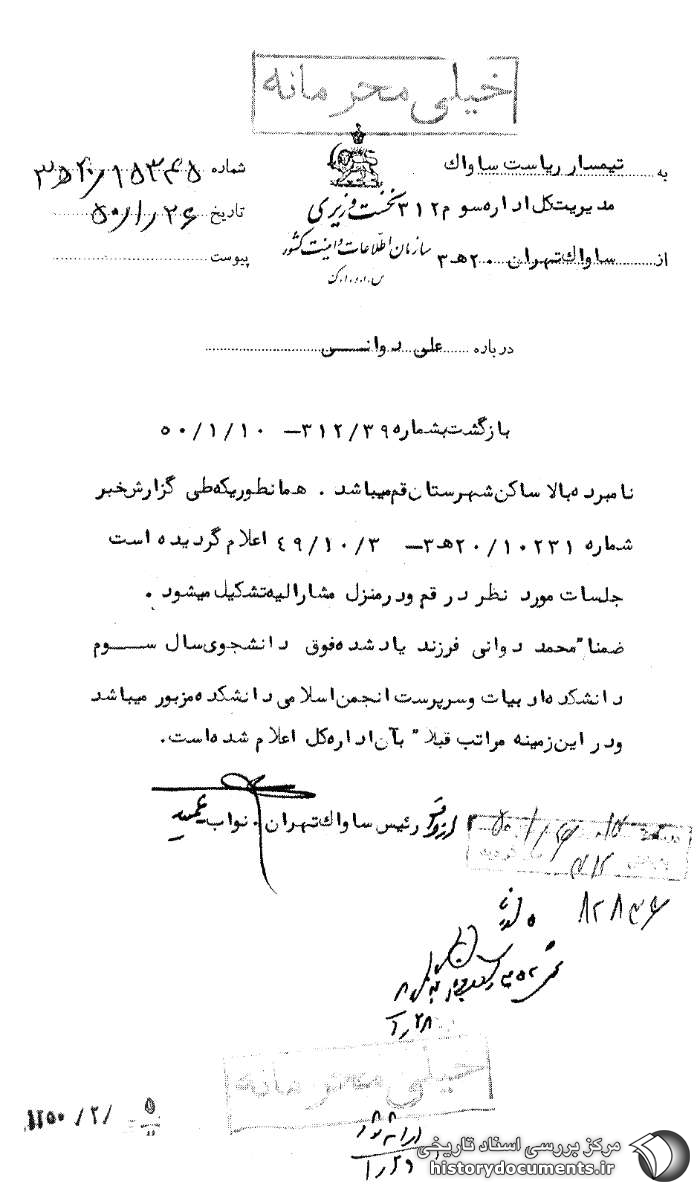 خیلی محرمانه
به تیمسار ریاست ساواك
مدیریت کل اداره سوم ۳۱۲
از ساواك تهران ۲۰هـ۳
نخست وزیری
سازمان اطلاعات و امنیت کشور
س.ا.و.ا.ک
شماره ۱۵۳۴۵/۲۰هـ۳
تاریخ ۵۰/۱/۲۶
پیوست
درباره علی دوانی
بازگشت بشماره ۳۱۲/۳۹ – ۵۰/۱/۱۰
نامبرده بالا ساکن شهرستان قم میباشد . همانطوریکه طی گزارش خبر
شماره ۲۰/۱۰۲۳۱هـ۳ – ۴۹/۱۰/۳ اعلام گردیده است
جلسات مورد نظر در قم ودر منزل مشارالیه تشکیل میشود .
ضمنا" محمد دوانی فرزند یاد شده فوق دانشجوی سال سوم
دانشکده ادبیات وسرپرست انجمن اسلامی دانشکده مزبور میباشد
ودر این زمینه مراتب قبلا" بآن اداره کل اعلام شده است.
رئیس ساواك تهران . نواب
۸۲۸۴۶
۲۸ر۱
خیلی محرمانه
۱۳۵۰/۲/۵
مرکز بررسی اسناد تاریخی
historydocuments.ir